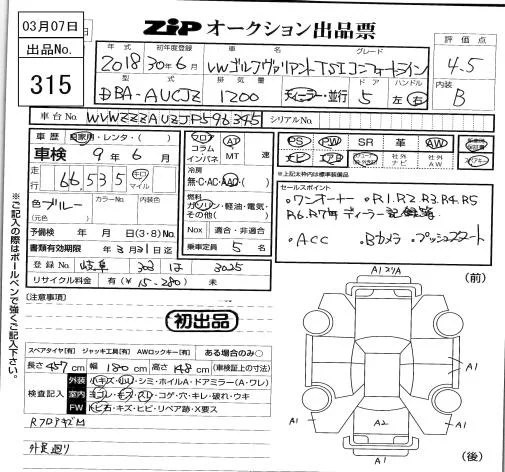 03月07日
出品No.
315
ZIP オークション出品票
年式 初年度登録 車名 グレード
2018 30年6月 VWゴルフヴァリアントTSIコンフォートライン
型式 排気量 ドア ハンドル
DBA-AUCJZ 1200 ディーラー・並行 5 左 右
評価点
4.5
内装
B
車台No. WVWZZZAUZJP596345 シリアルNo.
車歴 自家用・レンタ・( )
車検 9年6月
走行 66535 キロ マイル
色 ブルー カラーNo. 内装色
(元色)
予備検 年 月 日 (3・8)No.
書類有効期限 年3月31日迄
登録No. 岐阜 303 は 3025
リサイクル料金 有(¥15,280) 未
フロア コラム インパネ
AT MT 速
冷房
無・C・AC・AAC( )
燃料
ガソリン・軽油・電気・その他( )
NOx 適合・非適合
乗車定員 5 名
PS PW SR 革 AW
ナビ エアB 社外ナビ 社外AW
※上記太枠内は標準装備品
セールスポイント
・ワンオーナー ・R1.R2.R3.R4.R5
R6.R7年ディーラー記録簿
・ACC ・Bカメラ ・プッシュスタート
[注意事項]
初出品
スペアタイヤ[有] ジャッキ工具[有] AWロックキー[有] ある場合のみ○
長さ457cm 幅180cm 高さ148cm (車検証上の寸法)
検査記入
外装 小キズ・小凹・シミ・ホイルA・ドアミラー(A・ワレ)
室内 ヨゴレ・キズ・スレ・コゲ・穴・キレ・破れ・ウキ
FW トビ石・キズ・ヒビ・リペア跡・X要ス
RフロアキズM
外足廻り
※ご記入の際はボールペンで強くご記入下さい。
(前)
A1
A1
A1
A2
A1
A1
(後)